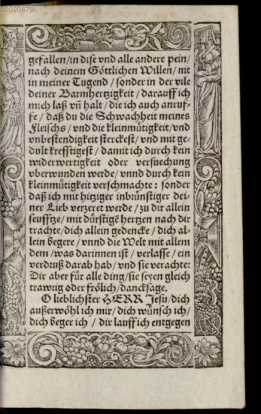 gefallen / in dise vnd alle andere pein /
nach deinem Göttlichen Willen / nit
in meiner Tugend / sonder in der vile
deiner Barmhertzigkeit / darauff ich
mich laß vñ halt / die ich auch anruf-
fe / daß du die Schwachheit meines
Fleischs / vnd die kleinmütigkeit / vnd
vnbestendigkeit sterckest / vnd mit ge-
dult krefftigest / damit ich durch kein
widerwertigkeit oder versuechung
vberwunden werde / vnnd durch kein
kleinmütigkeit verschmachte : sonder
daß ich mit hitziger inbrünstiger dei-
ner Lieb verzeret werde / zu dir allein
seufftze / mit dürstigē hertzen nach dir
trachte / dich allein gedencke / dich al-
lein begere / vnnd die Welt mit allem
dem / was darinnen ist / verlasse / ein
verdruß darab hab / vnd sie verachte:
Dir aber für alle ding / sie seyen gleich
trawrig oder frölich / dancksage.
O lieblichster HERR Jesu / dich
außerwöhl ich mir / dich wünsch ich /
dich beger ich / dir lauff ich entgegen